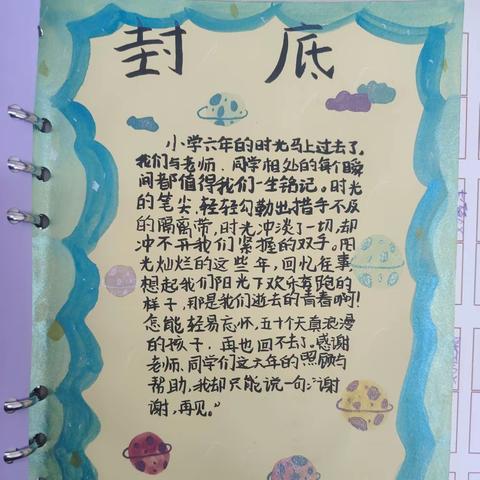 封 底
小学六年的时光马上过去了。
我们与老师、同学相处的每个瞬
间都值得我们一生铭记。时光
的笔尖,轻轻勾勒出措手不及
的隔离带,时光冲淡了一切,却
冲不开我们紧握的双手。阳
光灿烂的这些年,回忆往事,
想起我们阳光下欢乐奔跑的
样子,那是我们逝去的青春啊!
怎能轻易忘怀,五十个天真浪漫
的孩子,再也回不去了。感谢
老师、同学们这六年的照顾与
帮助,我却只能说一句:“谢
谢,再见。”